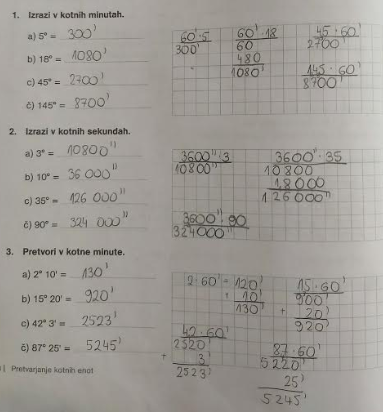 1. Izrazi v kotnih minutah.
a) 5° = 300'
b) 18° = 1080'
c) 45° = 2700'
č) 145° = 8700'
60'·5
300'
60'·18
60
480
1080'
45·60'
2700'
145·60'
8700'
2. Izrazi v kotnih sekundah.
a) 3° = 10800''
b) 10° = 36 000''
c) 35° = 126 000''
č) 90° = 324 000''
3600''·3
10800''
3600''·35
10800
18000
126000''
3600''·90
324000''
3. Pretvori v kotne minute.
a) 2° 10' = 130'
b) 15° 20' = 920'
c) 42° 3' = 2523'
č) 87° 25' = 5245'
2·60' = 120'
+ 10'
130'
15·60'
900'
+ 20'
920'
42·60'
2520'
+ 3'
2523'
87·60'
5220'
25'
5245'
Pretvarjanje kotnih enot